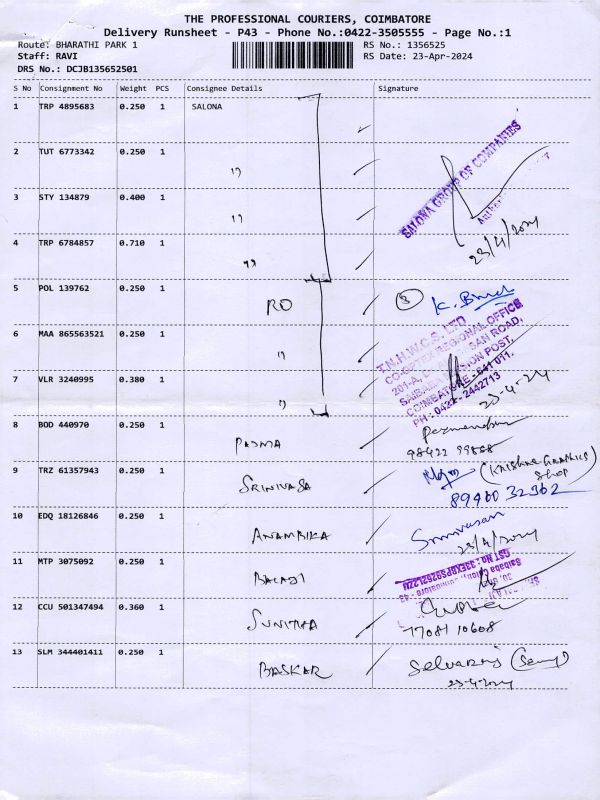 THE PROFESSIONAL COURIERS, COIMBATORE
Delivery Runsheet - P43 - Phone No.:0422-3505555 - Page No.:1
Route: BHARATHI PARK 1
RS No.: 1356525
Staff: RAVI
RS Date: 23-Apr-2024
DRS No.: DCJB135652501
S No Consignment No Weight PCS Consignee Details Signature
1 TRP 4895683 0.250 1 SALONA
SALONA GROUP OF COMPANIES
2 TUT 6773342 0.250 1 "
3 STY 134879 0.400 1 "
23/4/2024
4 TRP 6784857 0.710 1 "
5 POL 139762 0.250 1 RO
3
T.N.H.W.C.S. LTD
CO-OPTEX REGIONAL OFFICE
6 MAA 865563521 0.250 1 "
7 VLR 3240995 0.380 1 "
COIMBATORE - 641 011.
PH : 0422 - 2442713
23-4-24
8 BOD 440970 0.250 1 PADMA
9 TRZ 61357943 0.250 1 SRINIVASA
(Krishna Graphics)
Shop
89460 32362
10 EDQ 18126846 0.250 1 ANAMBIKA
Srinivasan
23/4/2024
11 MTP 3075092 0.250 1 BALAJI
12 CCU 501347494 0.360 1 SUNITHA
77081 10608
13 SLM 344401411 0.250 1 BASKAR
Selvaraj
23-4-2024